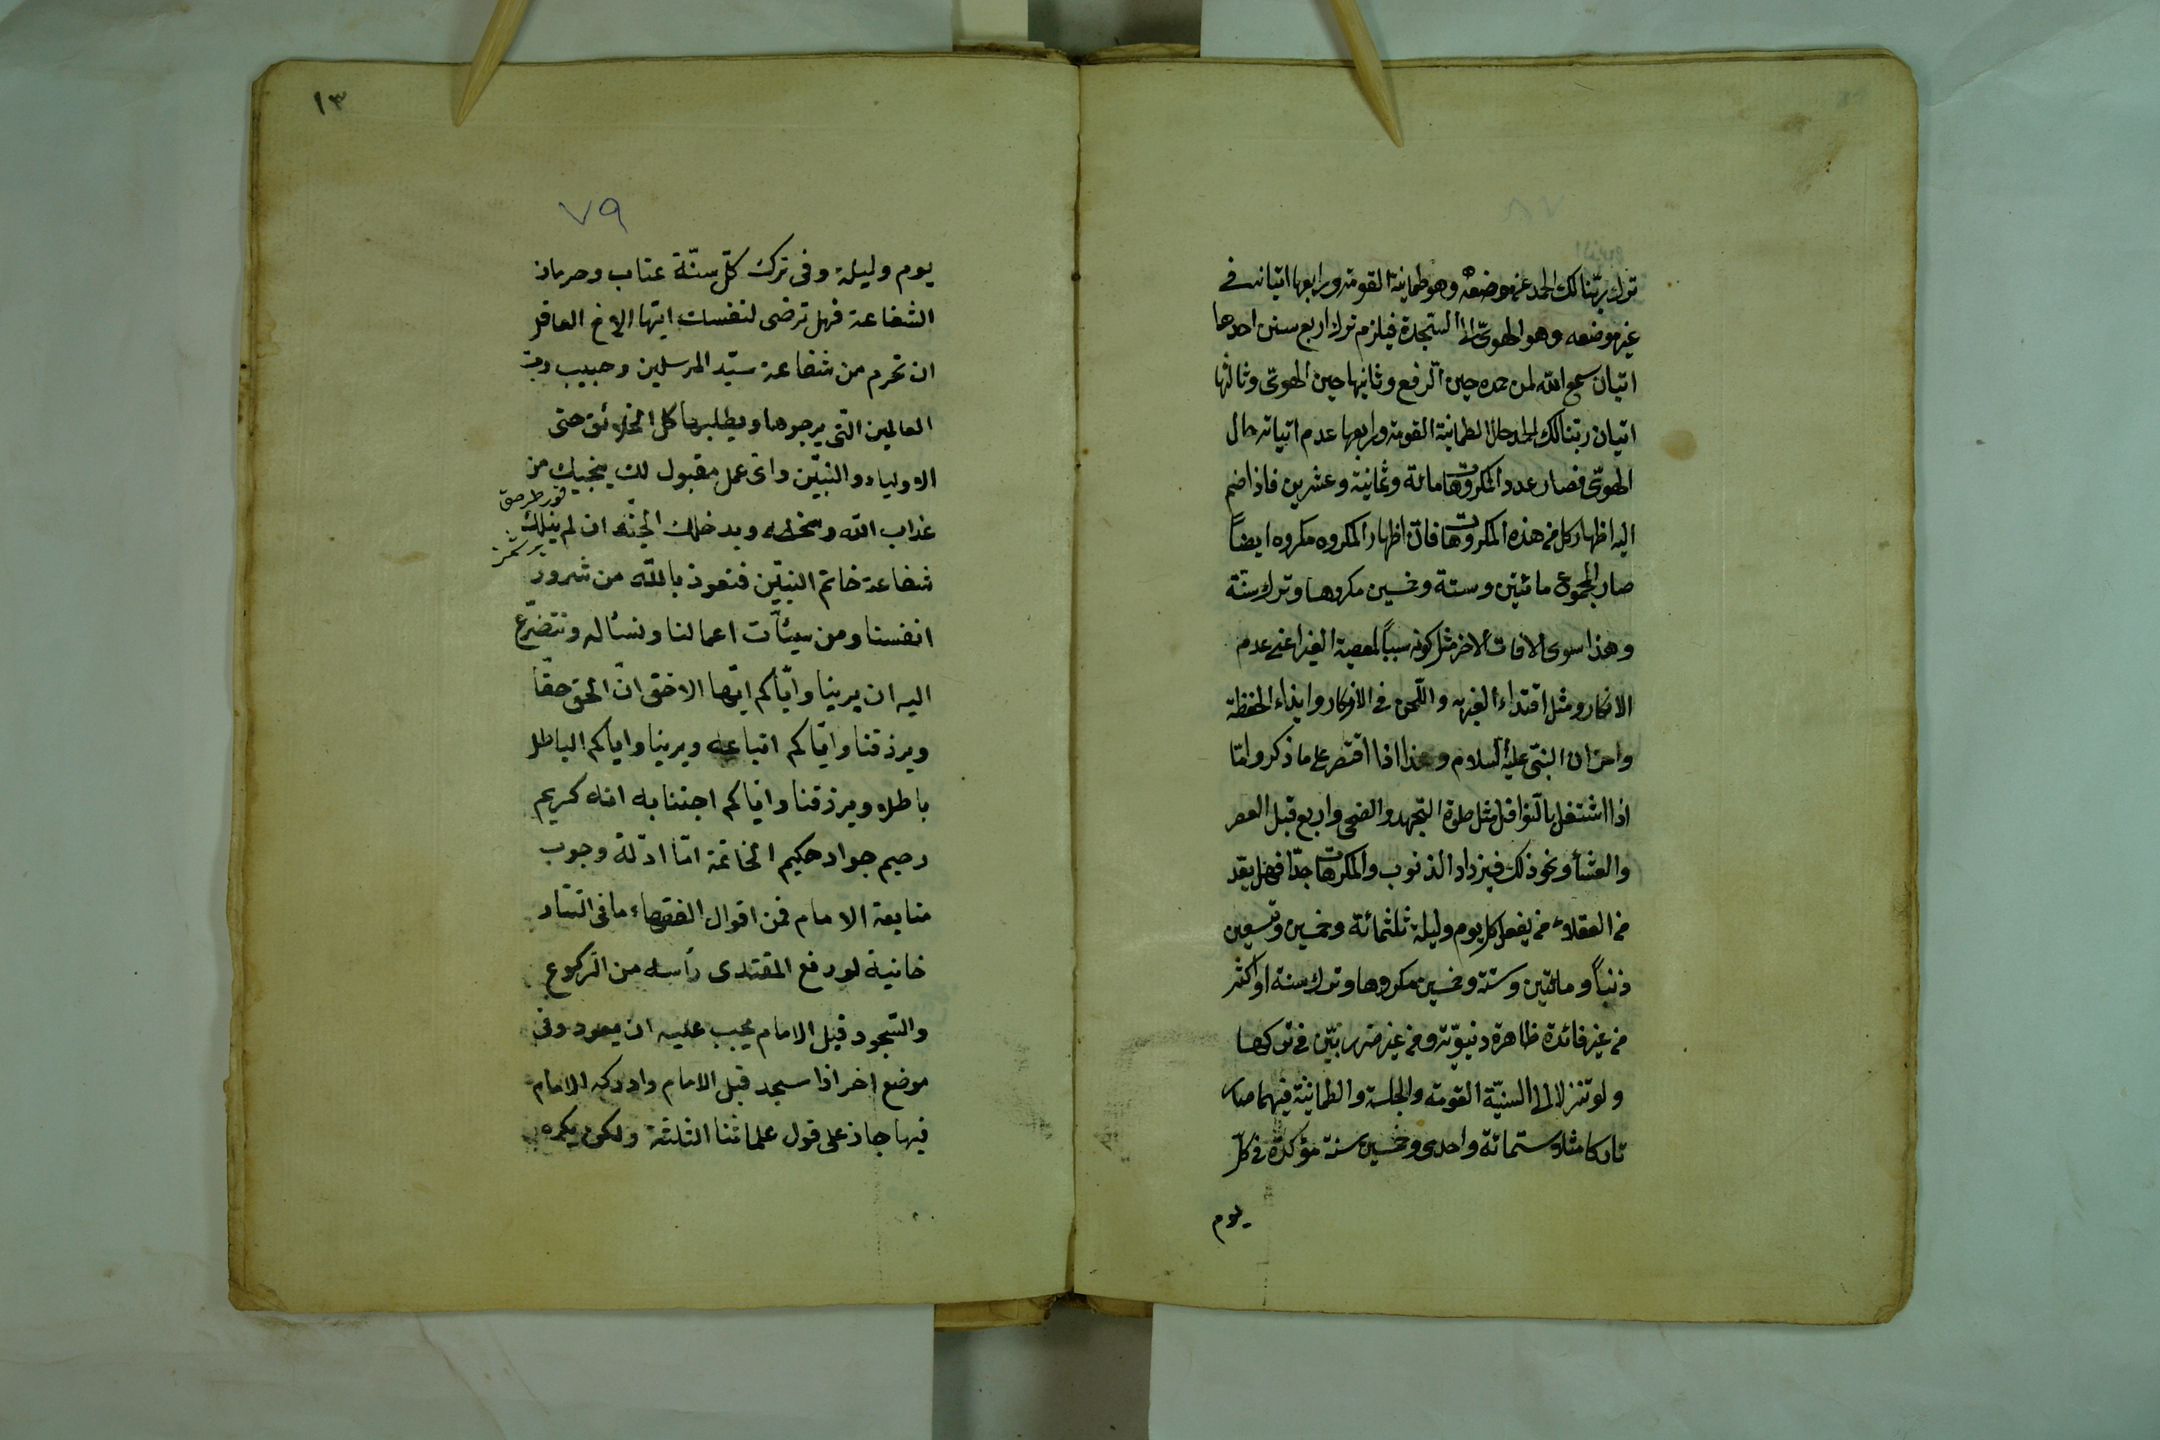 ترك ربّنا لك الحمد عن موضعه وهو طمانينة القومة ورابعها اتيانه فى
غير موضعه وهو الهوىّ الى السّجدة فيلزم ترك اربع سنن احدها
اتيان سمع الله لمن حمده حين الرّفع وثانيها حين الهوىّ وثالثها
اتيان ربّنا لك الحمد حال الطمانينة القومة ورابعها عدم اتيانه حال
الهوىّ فصار عدد المكروهات مائة وثمانية وعشرين فاذا ضم
اليه اظهار كل من هذه المكروهات فان اظهار المكروه مكروه ايضاً
صار المجموع مائتين وستة وخمسين مكروها وترك سنّة
وهذا سوى الافات الاخر مثل كونه سبباً لمعصية الغير اعنى عدم
الانكار ومثل اقتداء الغير به واللّحن فى الاذكار وايذاء الحفظة
واحزان النبىّ عليه السّلام وهذا اذا اقتصر على ما ذكر وامّا
اذا اشتغل بالنّوافل مثل صلوة التهجد والضحى واربع قبل العصر
والعشأ ونحو ذلك فيزداد الذنوب والمكروهات جدّا فهل يعدّ
من العقلاء من يفعل كل يوم وليلة ثلثمائة وخمسين وتسعين
ذنباً ومائتين وستة وخمسين مكروها وترك سنة او اكثر
من غير فائدة ظاهرة دنيويّة ومن غير ضرر بيّن فى تركها
ولو تنزلا الى السنيّة القومة والجلسة والطمانينة فيهما صار
تاركا مثلا ستمائة واحدى وخمسين سنة مؤكدة فى كلّ
يوم
١٣
٧٩
يوم وليلة وفى ترك كلّ سنّة عتاب وحرمان
الشفاعة فهل ترضى لنفسك ايّها الاخ العاقل
ان تحرم من شفاعة سيّد المرسلين وحبيب ربّ
العالمين التى يرجوها ويطلبها كل الخلائق حتى
الاولياء والنبيّين واى عمل مقبول لك ينجيك من
عذاب الله وسخطه ويدخلك الجنّة ان لم ينلك
شفاعة خاتم النبيّين فنعوذ باللّه من شرور
انفسنا ومن سيّئآت اعمالنا ونسئاله ونتضرّع
اليه ان يرينا وايّاكم ايّها الاخّى انّ الحق حقّا
ويرزقنا وايّاكم اتباعه ويرينا واياكم الباطل
باطلا ويرزقنا وايّاكم اجتنابه انه كريم
رحيم جواد حكيم الخاتمة امّا ادلّة وجوب
متابعة الامام فمن اقوال الفقهاء ما فى التتار
خانية لو رفع المقتدى رأسه من الرّكوع
والسّجود قبل الامام يجب عليه ان يعود وفى
موضع اخر اذا سجد قبل الامام وادركه الامام
فيها جاز على قول علمائنا الثلثة ولكن يكره